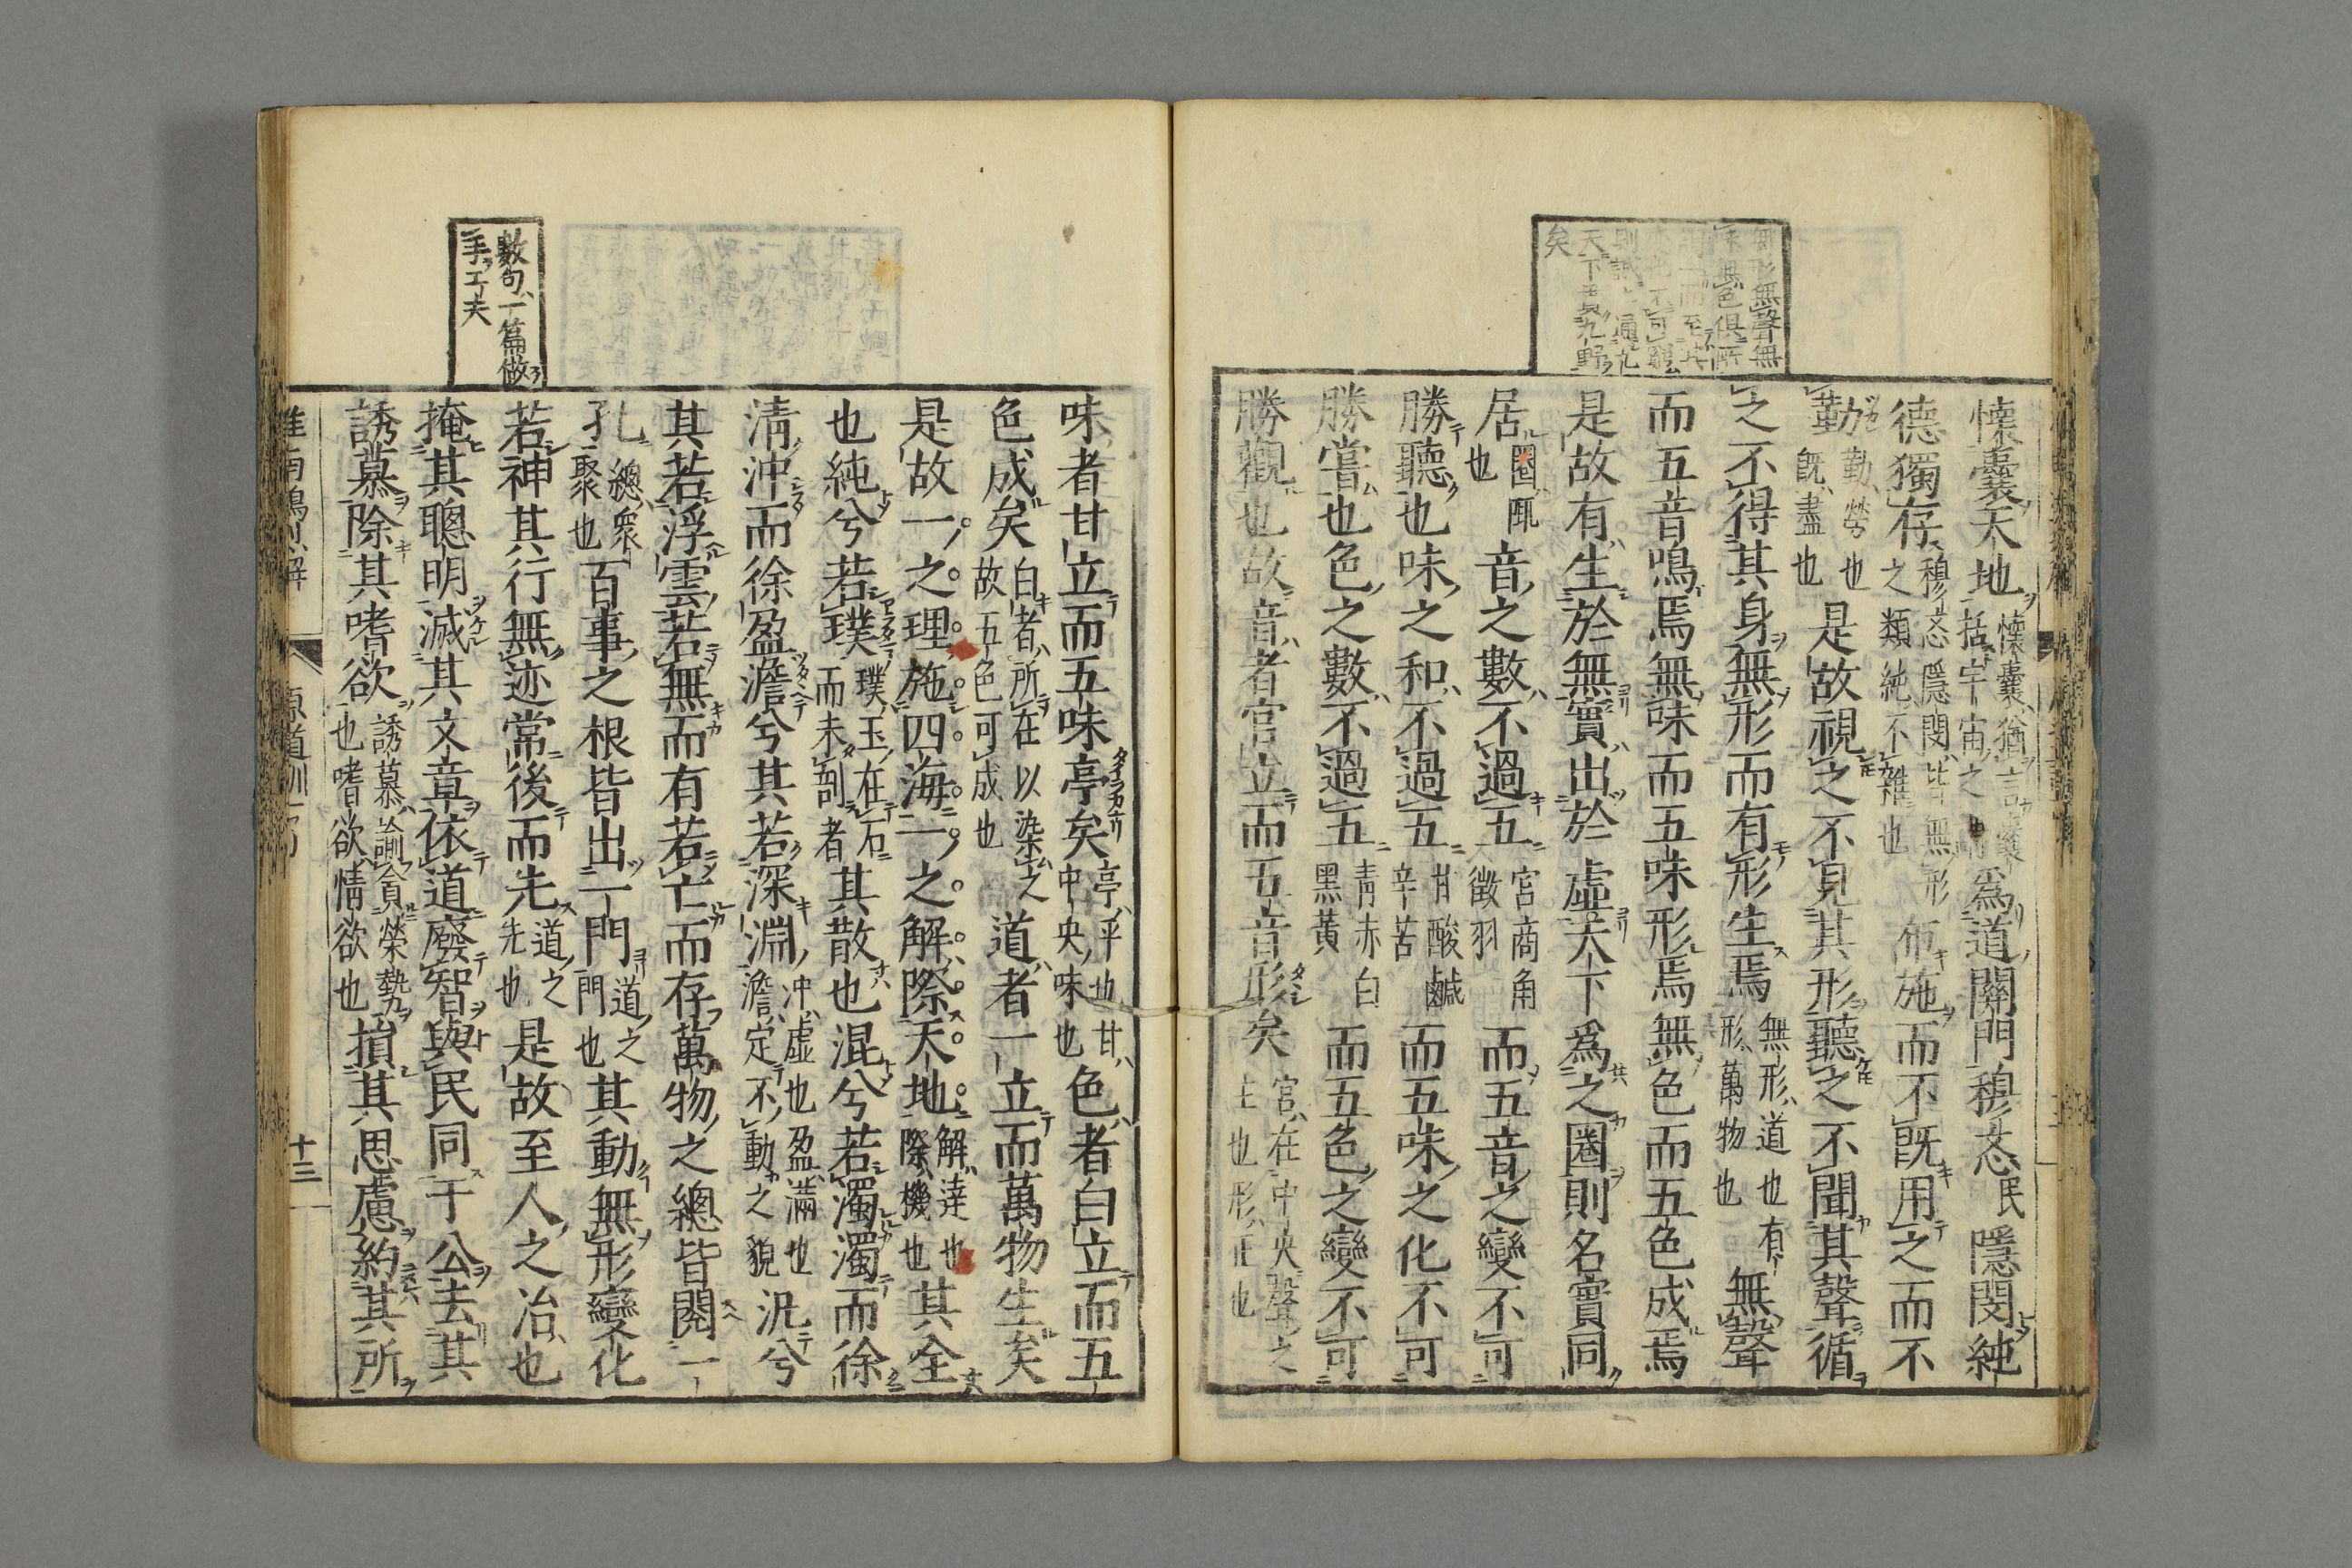 懷囊天地懷囊猶言囊括宇宙之為道關門穆忞民隱閔純
德獨存穆忞隱閔皆無形之類純不雜也布施而不既用之而不
勤勤勞也既盡也是故視之不見其形聽之不聞其聲循
之不得其身無形而有形生焉無形道也有形萬物也無聲
而五音鳴焉無味而五味形焉無色而五色成焉
是故有生於無實出於虛天下為之圈則名實同
居圈匦也音之數不過五宮商角徵羽而五音之變不可
勝聽也味之和不過五甘酸鹹辛苦而五味之化不可
勝嘗也色之數不過五青赤白黑黃而五色之變不可
勝觀也故音者宮立而五音形矣宮在中央聲之主也形正也
味者甘立而五味亭矣亭平也甘中央味也色者白立而五
色成矣白者所在以染之故五色可成也道者一立而萬物生矣
是故一之理施四海一之解際天地解達也際機也其全
也純兮若璞璞玉在石而未剖者其散也混兮若濁濁而徐
清沖而徐盈澹兮其若深淵沖虛也盈滿也澹定不動之貌汎兮
其若浮雲若無而有若亡而存萬物之總皆閱一
孔總衆聚也百事之根皆出一門道之門也其動無形變化
若神其行無迹常後而先道之先也是故至人之治也
掩其聰明滅其文章依道廢智與民同于公去其
誘慕除其嗜欲誘慕諭貪榮勢也嗜欲情欲也損其思慮約其所
無形無聲無
味無色俱
而至
不可
通九
天下貫九野
矣
數句一篇做
手工夫
淮南鴻烈解
原道訓
十三